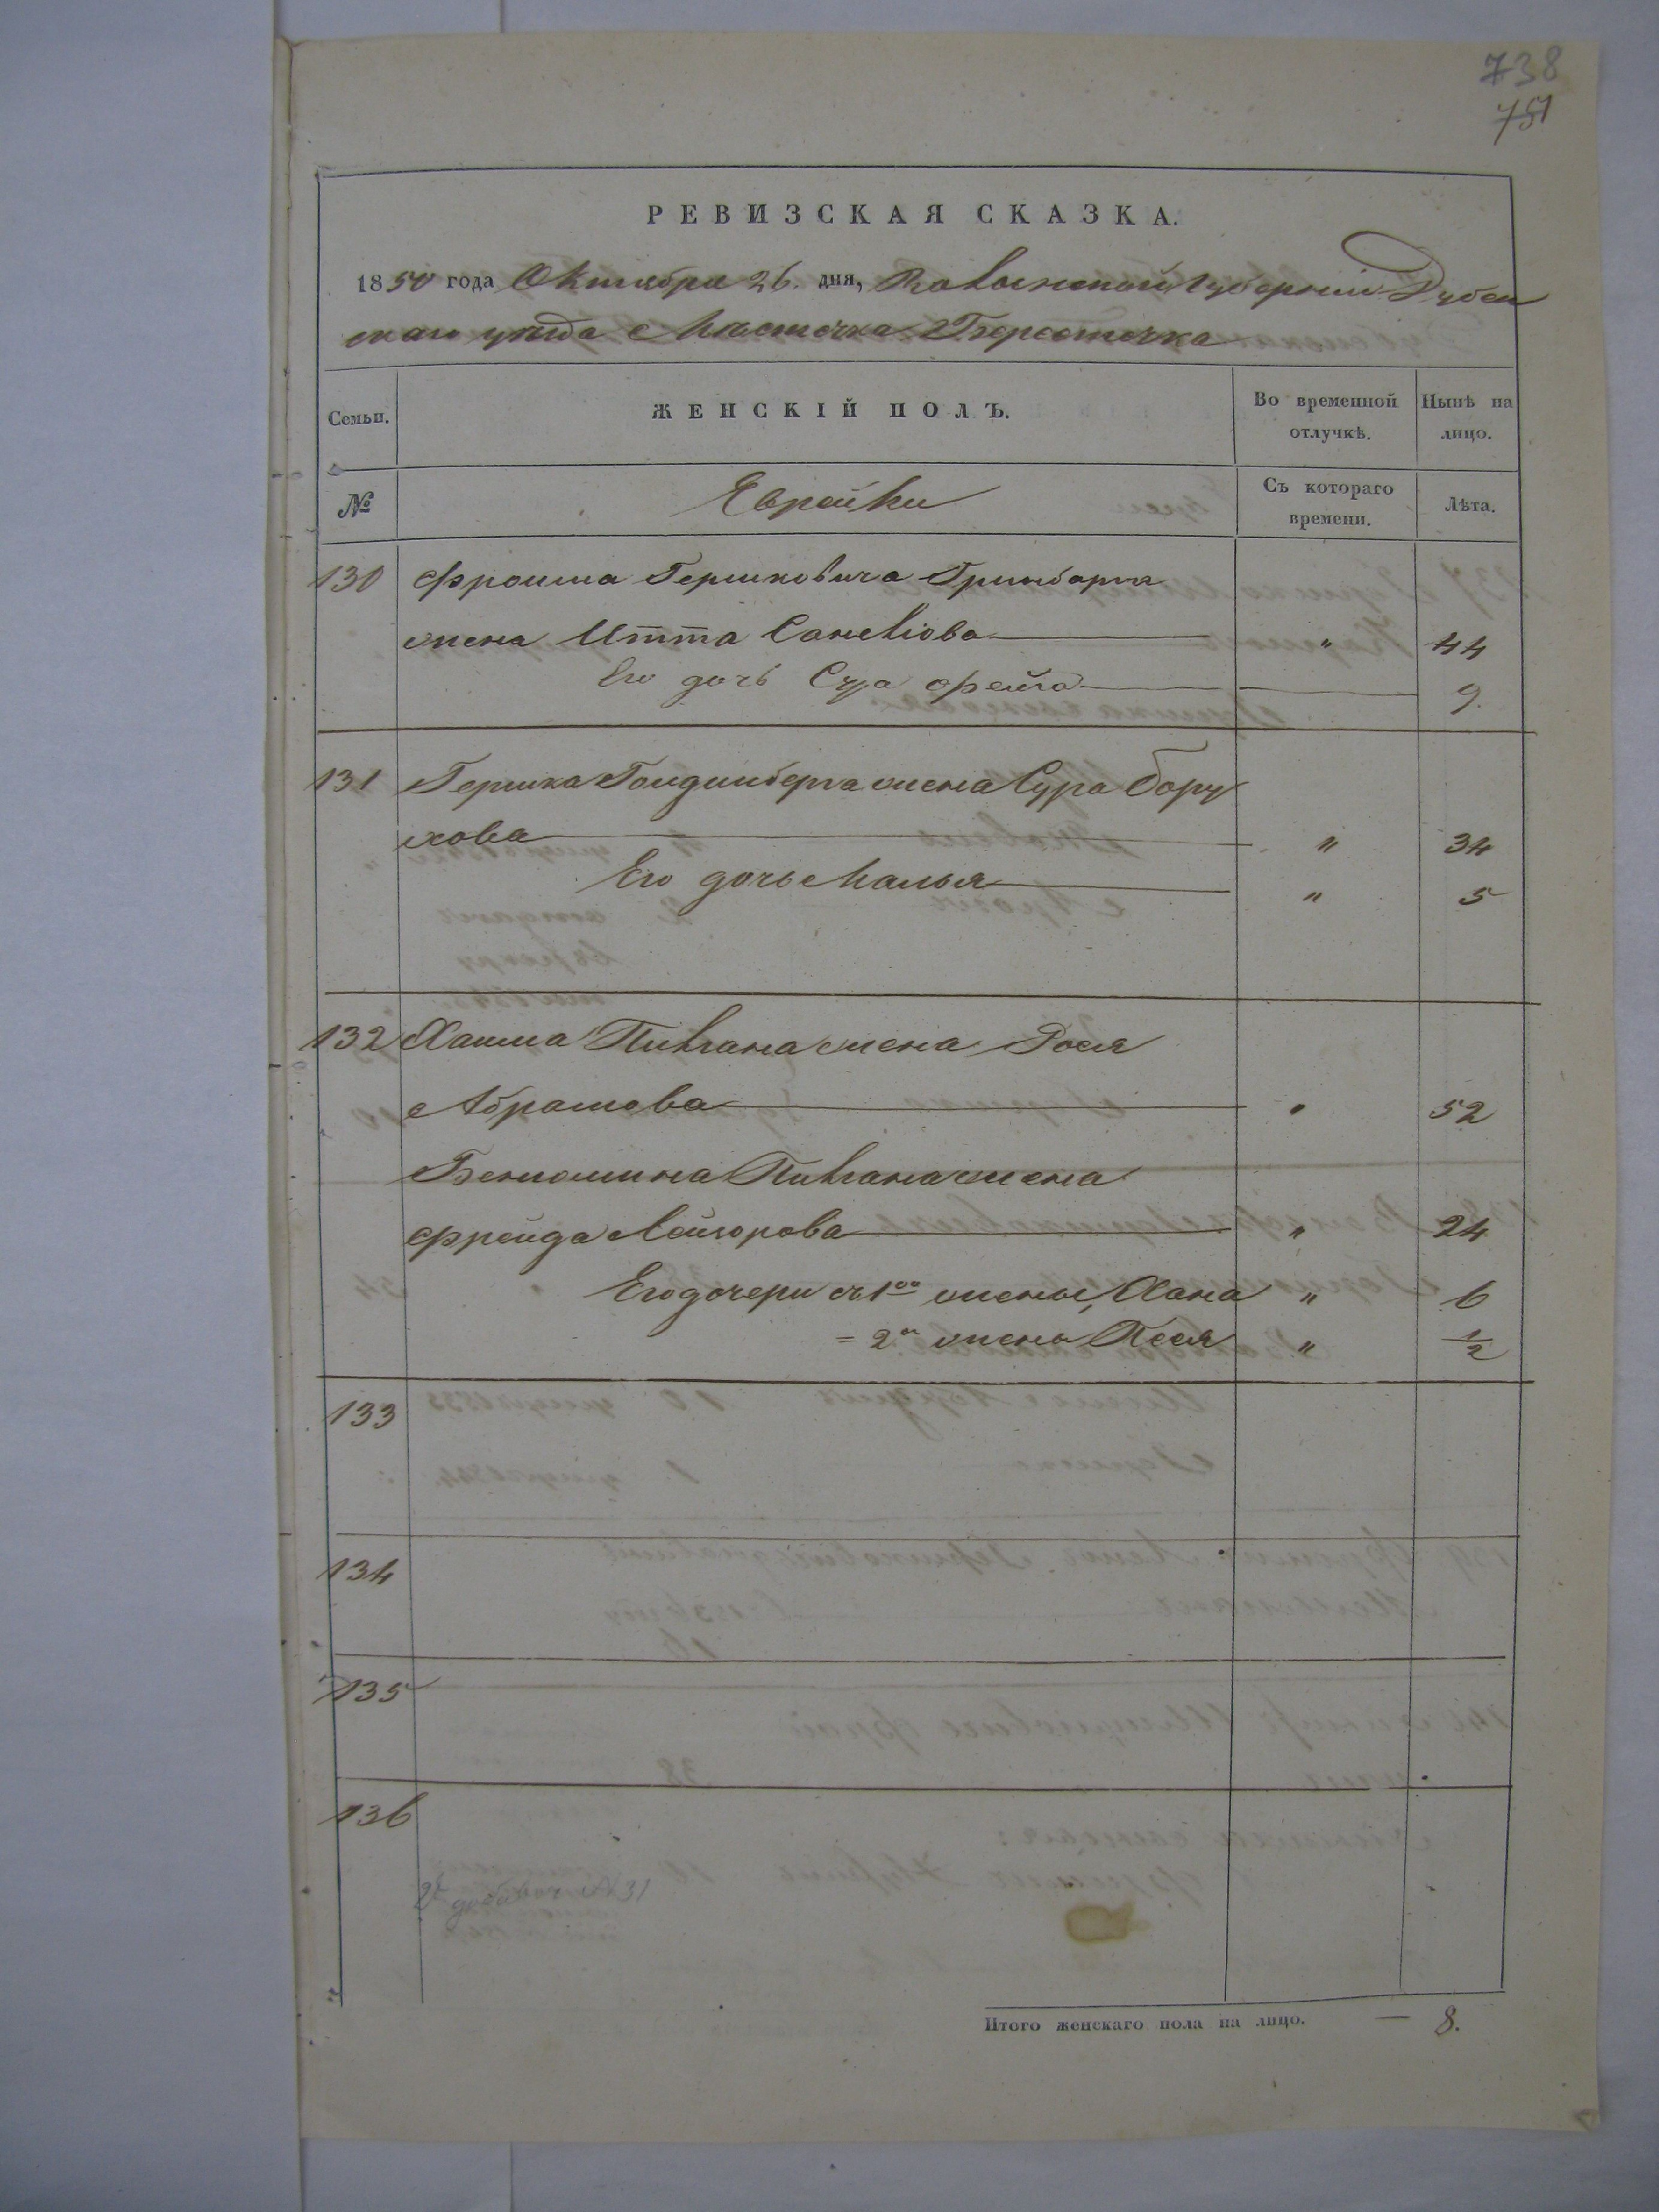 738
751
РЕВИЗСКАЯ СКАЗКА.
1850 года Октября 26. дня, Волынской Губернии Дубен
скаго уезда Местечка Берестечка
Семьи. ЖЕНСКІЙ ПОЛЪ. Во временной отлучкѣ. Нынѣ на лицо.
№ Еврейки Съ котораго времени. Лѣта.
130 Фроима Гершковича Гринберга
жена Итта " 44
Его дочь Сура Фейга 9.
131 Гершка жена Сура Бору
хова " 34
Его дочь Малья " 5
132 Хаима жена Рося
Абрамова " 52
Бениомина жена
Фрейда Лейзорова " 24
Его дочери съ 1ой жены, Хана " 6
= 2й жены Песя " 1/2
133
134
135
136
31
Итого женскаго пола на лицо. — 8.